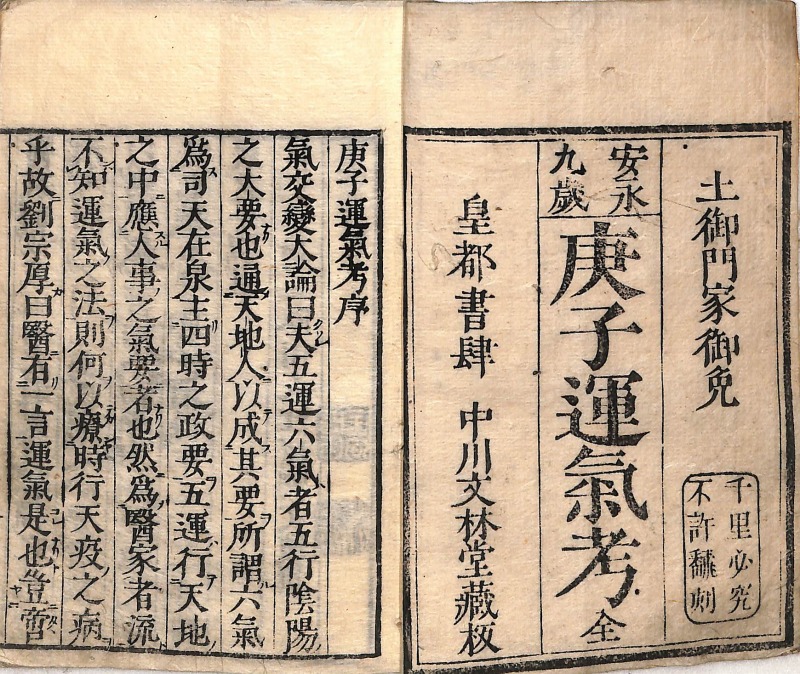 土御門家御免
千里必究
不許翻刻
安永
九歳
庚子運氣考 全
皇都書肆 中川文林堂藏板
庚子運氣考序
氣交變大論曰夫五運六氣者五行陰陽
之大要也通天地人以成其要所謂六氣
爲司天在泉主四時之政要五運行天地
之中應人事之氣要者也然爲醫家者流
不知運氣之法則何以療時行天疫之病
乎故劉宗厚曰醫有一言運氣是也豈啻